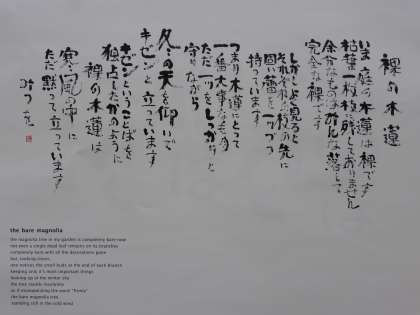 裸の木蓮
いま庭の木蓮は裸です
枯葉一枚枝に残しておりません
余分なものはみんな落して
完全な裸です
しかしよく見ると
それぞれの枝の先に
固い蕾を一つづつ
持っています
つまり木蓮にとって
一番大事なもの
ただ一つをしっかりと
守りながら
冬の天を仰いで
キゼンと立っています
キゼンということばを
独占したかのように
裸の木蓮は
寒風の中に
ただ黙って立っています
the bare magnolia
the magnolia tree in my garden is completely bare now
not even a single dead leaf remains on its branches
completely bare with all the decorations gone
but, looking closer,
one notices the small buds at the end of each branch
keeping only it's most important things
looking up at the winter sky
the tree stands resolutely
as if monopolizing the word "firmly"
the bare magnolia tree
standing still in the cold wind